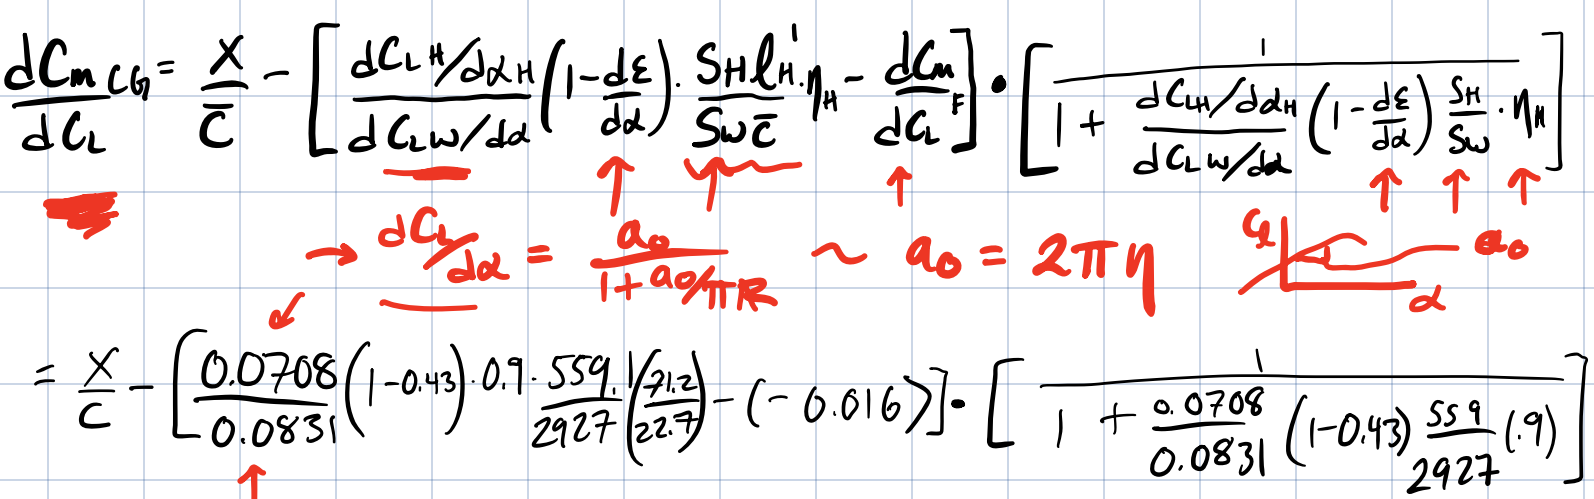 dCm CG/dCL = X/c̄ - [ (dCLH/dαH)/(dCLW/dα) (1 - dε/dα) · SH lH'/SW c̄ · ηH - dCm/dCL F ] · [ 1/(1 + (dCLH/dαH)/(dCLW/dα) (1 - dε/dα) SH/SW · ηH) ]
→ dCL/dα = a₀/(1 + a₀/πR) ~ a₀ = 2πη Cl a₀ α
= X/C - [ 0.0708/0.0831 (1-0.43) · 0.9 · 559.1/2927 (71.2/22.7) - (-0.016) ] · [ 1/(1 + 0.0708/0.0831 (1-0.43) 559/2927 (.9)) ]